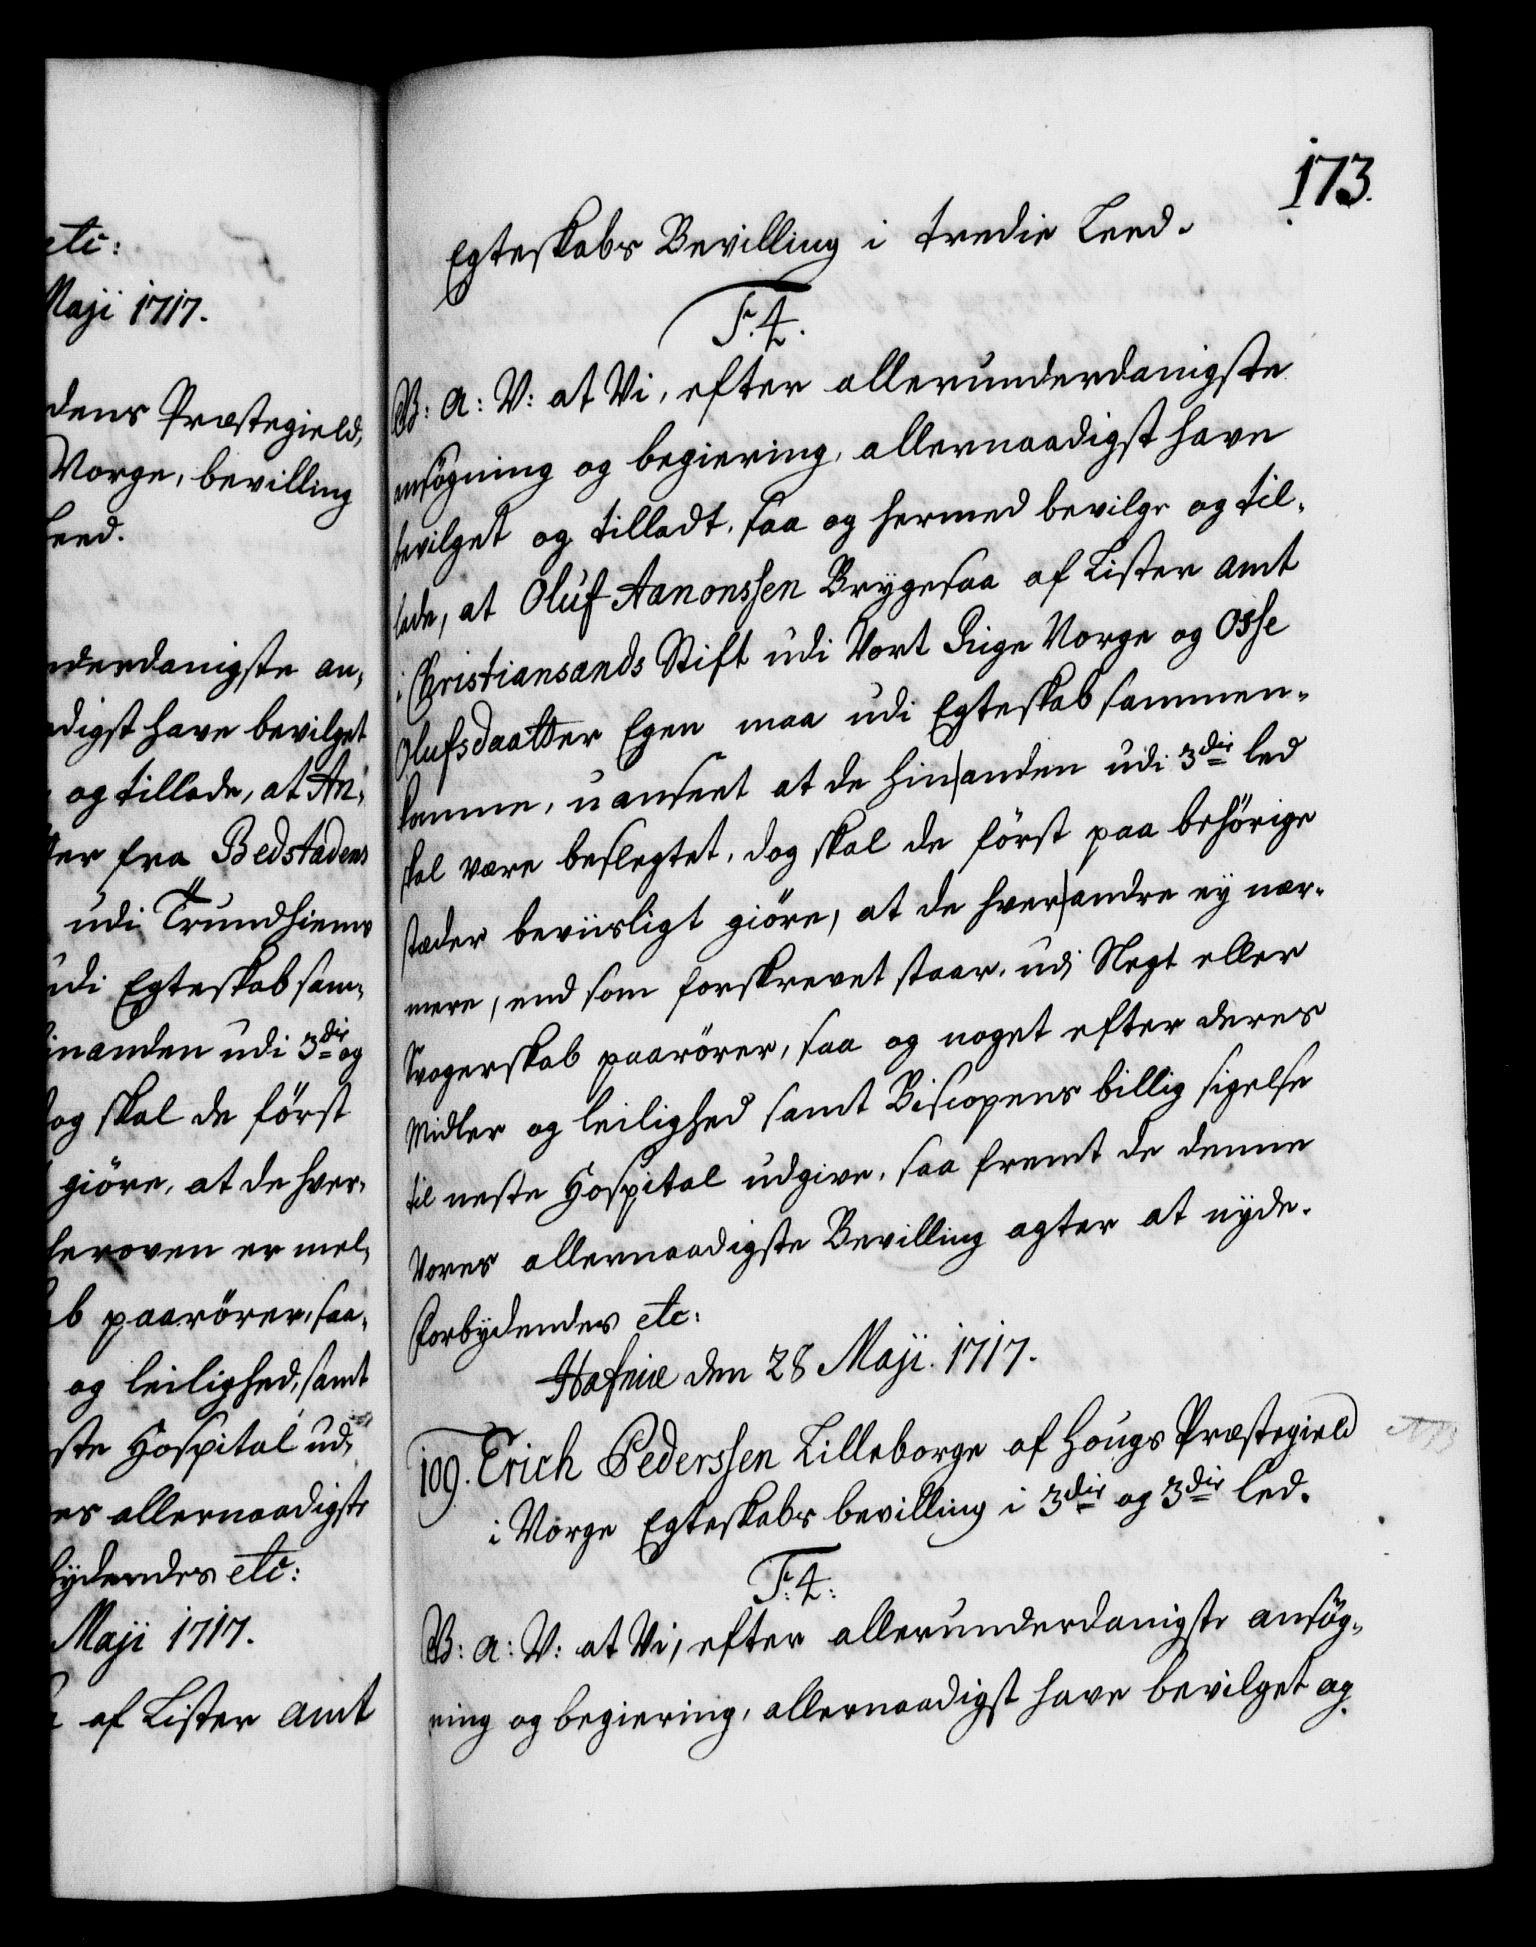 etc:
Maji 1717.
dens Præstegield,
Norge, bevilling
Leed.
underdanigste an,
adigst have bevilget
og tillade, at An,
ter fra Bedstadens
udi Trundhiems
udi Egteskab sam,
hinanden udi 3die og
dog skal de först
giöre, at de hver,
heroven er mel,
ab paarörer, saa,
og leilighed, samt
ste Hospital ud,
es allernaadigste
bydendes etc:
Maji 1717.
af Lister amt
173.
Egteskabs Bevilling i tredie Leed.
F. 4.
B: A: V: at Vi, efter allerunderdanigste
ansögning og begiering, allernaadigst have
bevilget og tilladt, saa og hermed bevilge og til-
lade, at Oluf Aanonssen Brygesaa af Lister amt
i Christiansands Stift udi Vort Rige Norge og Osse
Olufsdaatter Egen maa udi Egteskab sammen-
komme, uanseet at de hin|anden udi 3die led
skal være beslegtet, dog skal de först paa behörige
stæder beviisligt giöre, at de hver|andre ey nær-
mere, end som forskrevet staar, udi Slegt eller
Svogerskab paarörer, saa og noget efter deres
Midler og leilighed samt Biscopens billig sigelse
til neste Hospital udgive, saa fremt de denne
Vores allernaadigste Bevilling agter at nyde.
Forbydendes etc:
Hafniæ den 28 Maji. 1717.
109. Erich Pederssen Lilleborge af Hougs Præstegield
i Norge Egteskabs bevilling i 3die og 3die led.
F: 4:
B: A: V: at Vi, efter allerunderdanigste ansög-
ning og begiering, allernaadigst have bevilget og